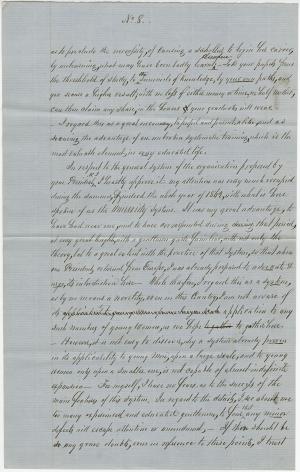 No. 8.
as to preclude the necessity, of causing a scholar to begin his career,
by unlearning, what may have been badly learnt — Take your pupils from
the threshold of study, to the summits of knowledge, by your own path, and
you secure a higher result, with no loss of either money or time, whilst no other
can then claim any share, in the honors your graduates will win —
I regard this as a great necessity, to pupil and parent alike and as
securing the advantage of an unbroken systematic training, which is the
most valuable element, in any educated life.
In respect to the general system of the organization proposed by
your President, I heartily approve it. My attention was very much occupied
during the summer, indeed the whole year of 1864, with what is here
spoken of as the University System. It was my great advantage, to
have had near me and to have corresponded during that period,
at very great length, with a gentleman quite familiar, with not only the
theory, but to a great extent with the practice of that System, so that when
our President, returned from Europe, I was already prepared to advocate
its introduction here — While therefore, I regard this as a system,
as by no means a novelty, even in this Country, I am not aware of
its application to any
such number of young women, as we hope to gather here —
However, it is not easy to discover, why a system already proven
in its applicability to young men, upon a large scale, and to young
women only upon a smaller one, is not capable of almost indefinite
expansion — For myself, I have no fears, as to the success of the
main features of this system. In regard to the details, I see about me
too many experienced and educated gentlemen, to fear, that any minor
defects will escape attention or amendment. — If there should be
any grave doubt, even in reference to these points, I trust